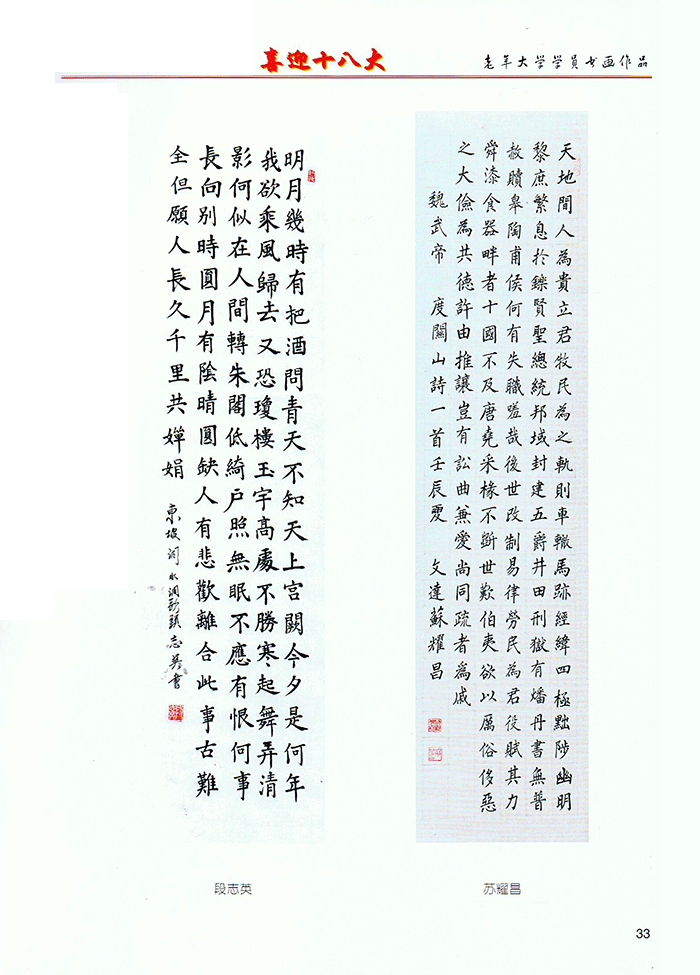 喜迎十八大
老年大学学员书画作品
明月幾時有把酒問青天不知天上宮闕今夕是何年
我欲乘風歸去又恐瓊樓玉宇高處不勝寒起舞弄清
影何似在人間轉朱閣低綺戶照無眠不應有恨何事
長向別時圓月有陰晴圓缺人有悲歡離合此事古難
全但願人長久千里共嬋娟
東坡詞水調歌頭志英書
段志英
天地間人為貴立君牧民為之軌則車轍馬跡經緯四極黜陟幽明
黎庶繁息於鑠賢聖總統邦域封建五爵井田刑獄有燔丹書無普
赦贖皋陶甫侯何有失職嗟哉後世改制易律勞民為君役賦其力
舜漆食器畔者十國不及唐堯采椽不斲世歎伯夷欲以厲俗侈惡
之大儉為共德許由推讓豈有訟曲兼愛尚同疏者為戚
魏武帝 度關山詩一首壬辰夏 文達蘇耀昌
苏耀昌
33